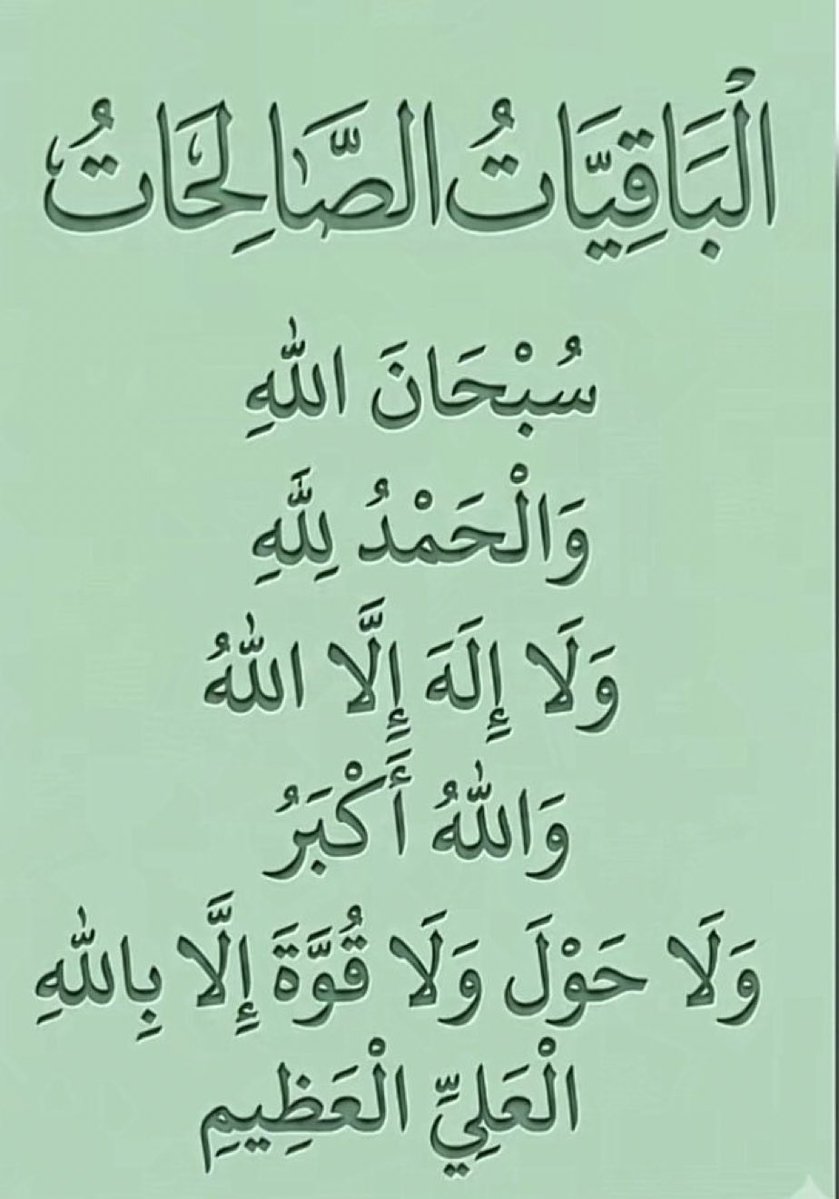 الْبَاقِيَّاتُ الصَّالِحَاتُ
سُبْحَانَ اللّٰهِ
وَالْحَمْدُ لِلَّهِ
وَلَا إِلَهَ إِلَّا اللّٰهُ
وَاللّٰهُ أَكْبَرُ
وَلَا حَوْلَ وَلَا قُوَّةَ إِلَّا بِاللّٰهِ
الْعَلِيِّ الْعَظِيمِ